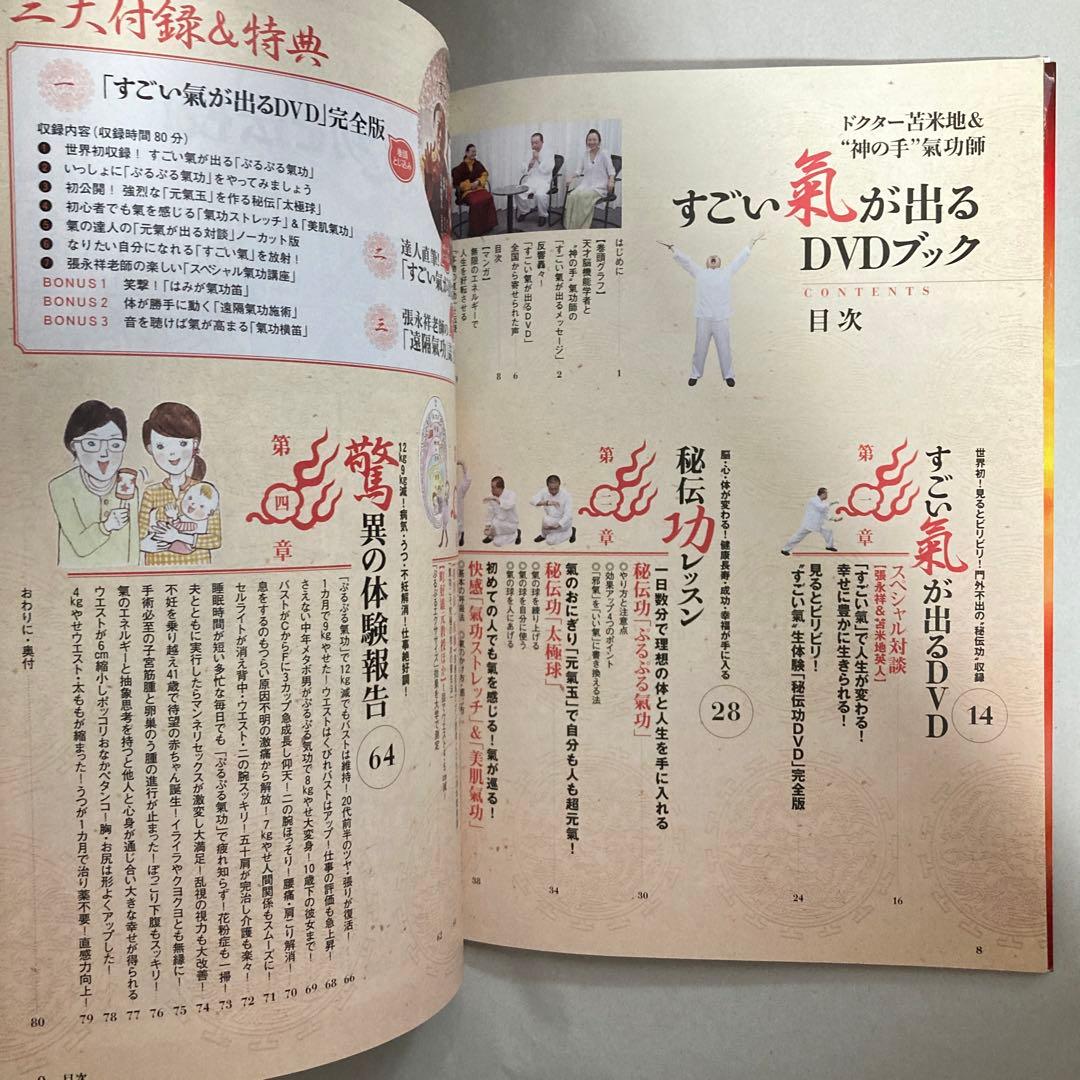 ドクター苫米地&
“神の手”氣功師
すごい氣が出る
DVDブック
CONTENTS
目次
はじめに 1
【巻頭グラフ】
天才脳機能学者と
“神の手”氣功師の
「すごい氣が出るメッセージ」 2
反響轟々!
「すごい氣が出るDVD」
全国から寄せられた声 6
目次 8
【マンガ】
無限のエネルギーで
人生を好転させる
世界初!見るとビリビリ!門外不出の“秘伝功”収録
第一章
すごい氣が出るDVD 14
スペシャル対談
【張永祥&苫米地英人】
「すごい氣」で人生が変わる!
幸せに豊かに生きられる! 16
見るとビリビリ!
“すごい氣”生体験「秘伝功DVD」完全版 24
脳・心・体が変わる!健康長寿・成功・幸福が手に入る
第二章
秘伝功レッスン 28
一日数分で理想の体と人生を手に入れる
秘伝功「ぷるぷる氣功」 30
◎やり方と注意点
◎効果アップ4つのポイント
◎「邪氣」を「いい氣」に書き換える法
氣のおにぎり「元氣玉」で自分も人も超元氣!
秘伝功「太極球」 34
◎氣の球を練り上げる
◎氣の球を自分に使う
◎氣の球を人にあげる
初めての人でも氣を感じる!氣が巡る!
快感「氣功ストレッチ」&「美肌氣功」 38
62
8
三大付録&特典
一
「すごい氣が出るDVD」完全版
巻頭とじ込み
収録内容(収録時間80分)
1 世界初収録! すごい氣が出る「ぷるぷる氣功」
2 いっしょに「ぷるぷる氣功」をやってみましょう
3 初公開! 強烈な「元氣玉」を作る秘伝「太極球」
4 初心者でも氣を感じる「氣功ストレッチ」&「美肌氣功」
5 氣の達人の「元氣が出る対談」ノーカット版
6 なりたい自分になれる「すごい氣」を放射!
7 張永祥老師の楽しい「スペシャル氣功講座」
BONUS1 笑撃!「はみが氣功笛」
BONUS2 体が勝手に動く「遠隔氣功施術」
BONUS3 音を聴けば氣が高まる「氣功横笛」
二
達人直筆!
「すごい氣
三
張永祥老師の
「遠隔氣功
12kg9kg減!病気・うつ・不妊解消!仕事絶好調!
第四章
驚異の体験報告 64
「ぷるぷる氣功」で12kg減でもバストは維持!20代前半のツヤ・張りが復活! 66
1カ月で9kgやせた!ウエストはくびれバストはアップ!仕事の評価も急上昇! 68
さえない中年メタボ男がぷるぷる気功で8kgやせ大変身!10歳下の彼女まで! 69
バストがCからFに3カップ急成長し仰天!二の腕ほっそり!腰痛・肩こり解消! 70
息をするのもつらい原因不明の激痛から解放!7kgやせ人間関係もスムーズに! 71
セルライトが消え背中・ウエスト・二の腕スッキリ!五十肩が完治し介護も楽々! 72
睡眠時間が短い多忙な毎日でも「ぷるぷる氣功」で疲れ知らず!花粉症も一掃! 73
夫とともに実行したらマンネリセックスが激変し大満足!乱視の視力も大改善! 74
不妊を乗り越え41歳で待望の赤ちゃん誕生!イライラやクヨクヨとも無縁に! 75
手術必至の子宮筋腫と卵巣のう腫の進行が止まった!ぽっこり下腹もスッキリ! 76
氣のエネルギーと抽象思考を持つと他人と心身が通じ合い大きな幸せが得られる 77
ウエストが6cm縮小しポッコリおなかペタンコ!胸・お尻は形よくアップした! 78
4kgやせウエスト・太ももが縮まった!うつが1カ月で治り薬不要!直感力向上! 79
おわりに・奥付 80
9 目次